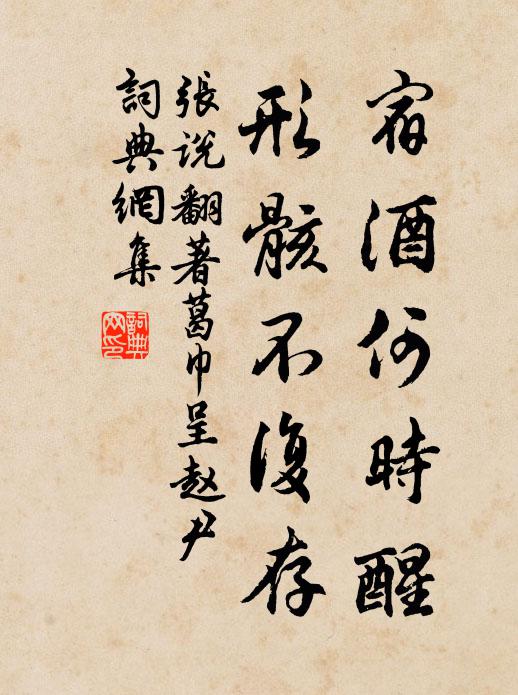 宿酒何時醒
形骸不復存
張说翻著葛巾呈赵尹
詞典網集
詞典網印